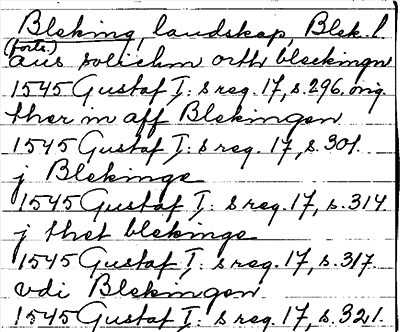 Bleking, landskap, Blek. l.
(forts.)
aus solichm orth bleckingn
1545 Gustaf I: s reg. 17, s. 296. orig.
ther in aff Blekingen
1545 Gustaf I: s reg. 17, s. 301.
j Blekinge
1545 Gustaf I: s reg. 17, s. 314
j thet blekinge
1545 Gustaf I: s reg. 17, s. 317.
vdi Blekingen.
1545 Gustaf I: s reg. 17, s. 321.